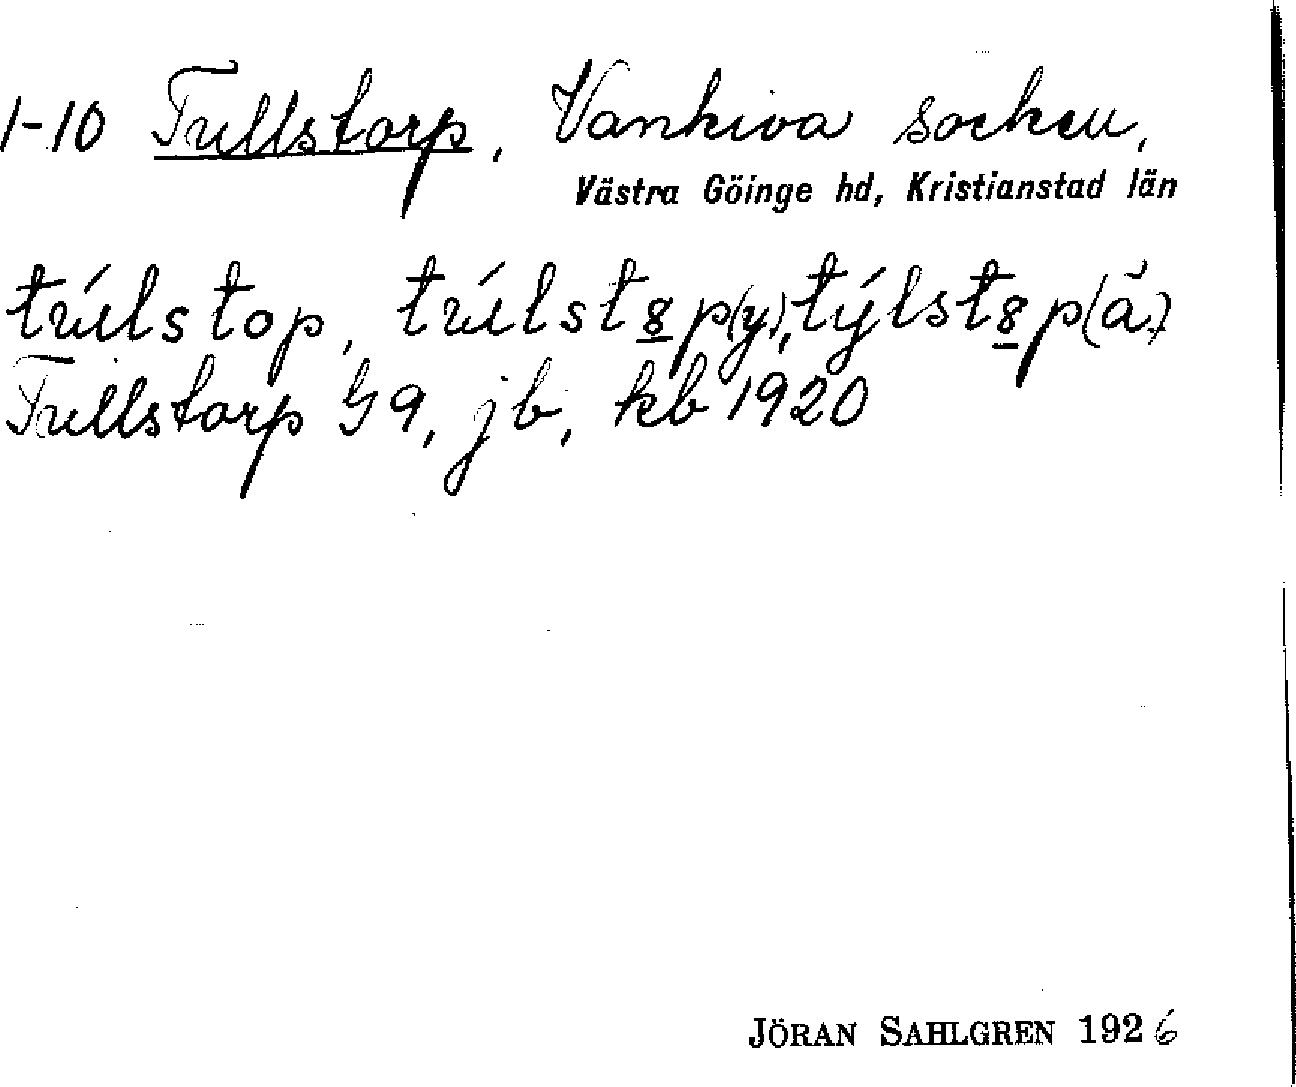 1-10 Tullstorp, Vankiva socken,
Västra Göinge hd, Kristianstad län
túlstop, túlst8p(y.), týlst8p(ä.)
Tullstorp G9, jb, kb 1920
JÖRAN SAHLGREN 1926